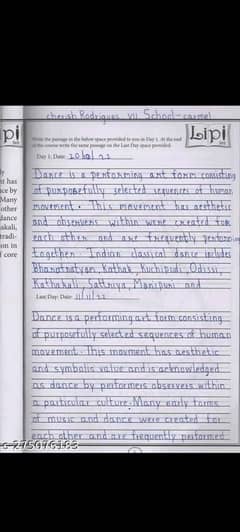 cherish Rodrigues VII School-carmel
pi
Lipi
Write the passage in the below space provided to you in Day 1. At the end
of the course write the same passage on the Last Day space provided.
Day 1: Date:
Dance is a performing art form consisting
of purposefully selected sequences of human
movement. This movement has aesthetic
and observers within were created for
each other and are frequently performing
together. Indian classical dance includes
bharatnatyam, Kathak, Kuchipudi, Odissi,
Kathakali, Sattriya, Manipuri and
Last Day: Date: 11/11/22
Dance is a performing art form consisting
of purposefully selected sequences of human
movement. This movment has aesthetic
and symbolis value and is acknowledged
as dance by performers obsevers within
a particular culture. Many early forms
of music and dance were created for
each other and are frequently performed
t has
ce by
Many
other
dance
akali,
tradi-
om in
f core